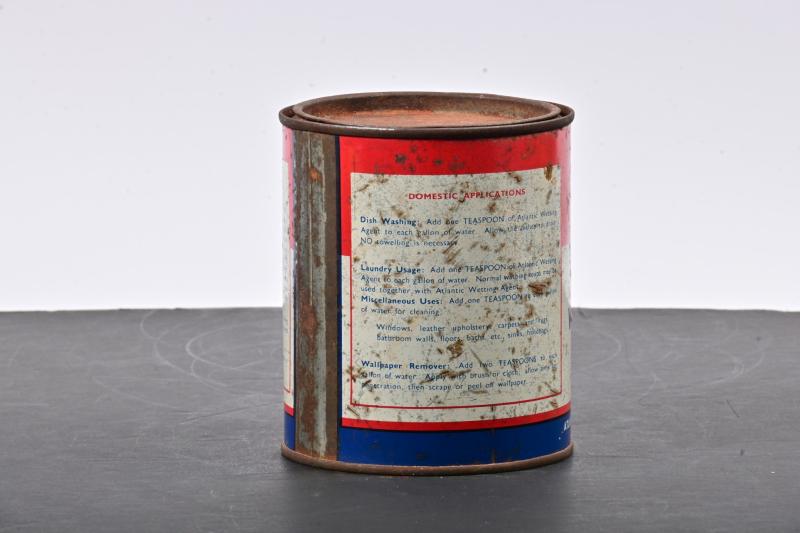 DOMESTIC APPLICATIONS
Dish Washing: Add one TEASPOON of Atlantic Wetting
Agent to each gallon of water. Allow the dishes to drain
NO towelling is necessary.
Laundry Usage: Add one TEASPOON of Atlantic Wetting
Agent to each gallon of water. Normal washing
used together with Atlantic Wetting Agent.
Miscellaneous Uses: Add one TEASPOON to
of water for cleaning:
Windows, leather upholstery, carpets and
bathroom walls, floors, baths, etc., sinks,
Wallpaper Remover: Add two TEASPOONS to each
gallon of water. Apply with brush or cloth, allow
penetration, then scrape or peel off wallpaper.